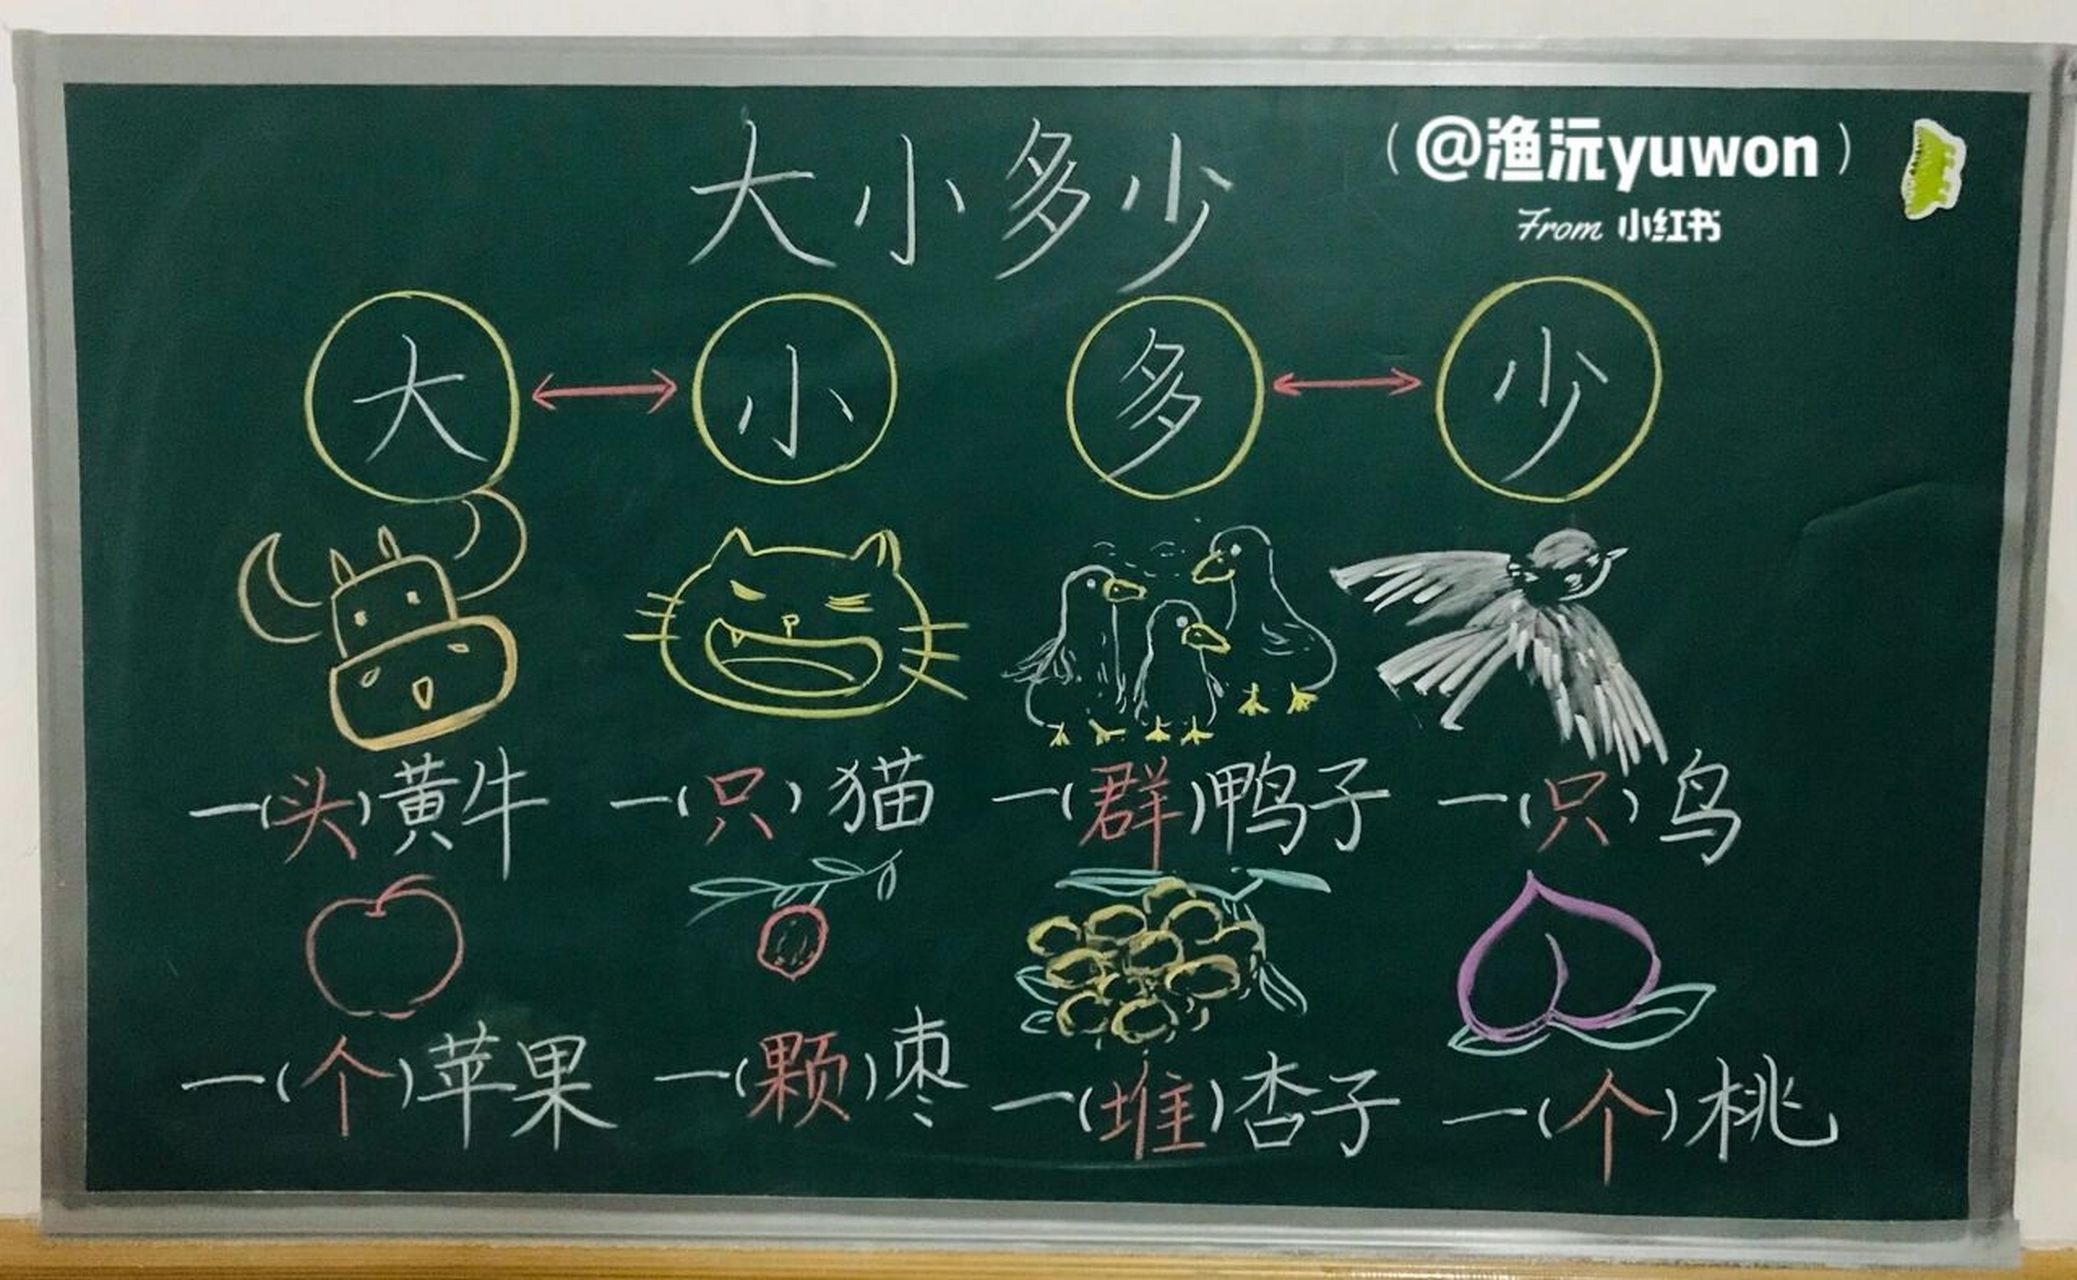 大小多少
（@渔沅yuwon）
From 小红书
大 小 多 少
一(头)黄牛 一(只)猫 一(群)鸭子 一(只)鸟
一(个)苹果 一(颗)枣 一(堆)杏子 一(个)桃